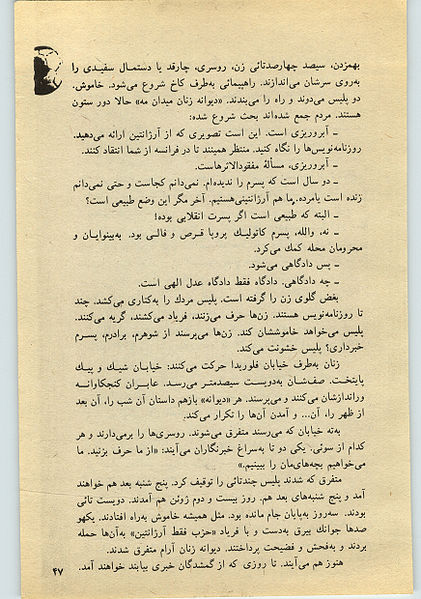 بهمزدن، سیصد چهارصدتائی زن، روسری، چارقد یا دستمال سفیدی را
به‌روی سرشان می‌اندازند. راهپیمائی به‌طرف کاخ شروع می‌شود. خاموش.
دو پلیس می‌دوند و راه را می‌بندند. «دیوانه زنان میدان مه» حالا دور ستون
هستند. مردم جمع شده‌اند بحث شروع شده:
ـ آبروریزی است. این است تصویری که از آرژانتین ارائه می‌دهید.
روزنامه‌نویس‌ها را نگاه کنید. منتظر همینند تا در فرانسه از شما انتقاد کنند.
ـ آبروریزی، مسألهٔ مفقودالاثرهاست.
ـ دو سال است که پسرم را ندیده‌ام. نمی‌دانم کجاست و حتی نمی‌دانم
زنده است یامرده. ما هم آرژانتینی‌هستیم. آخر مگر این وضع طبیعی است؟
ـ البته که طبیعی است اگر پسرت انقلابی بوده!
ـ نه، والله، پسرم کاتولیك پروپا قرص و فالی بود. به‌بینوایان و
محرومان محله کمك می‌کرد.
ـ پس دادگاهی می‌شود.
ـ چه دادگاهی. دادگاه فقط دادگاه عدل الهی است.
بغض گلوی زن را گرفته است. پلیس مردك را به‌کناری می‌کشد. چند
تا روزنامه‌نویس هستند. زن‌ها حرف می‌زنند، فریاد می‌کشند، گریه می‌کنند.
پلیس می‌خواهد خاموششان کند. زن‌ها می‌پرسند از شوهرم، برادرم، پسرم
خبرداری؟ پلیس خشونت می‌کند.
زنان به‌طرف خیابان فلوریدا حرکت می‌کنند: خیابان شیك و پیك
پایتخت. صف‌شان به‌دویست سیصدمتر می‌رسد. عابران کنجکاوانه
وراندازشان می‌کنند و می‌پرسند. هر «دیوانه» بازهم داستان آن شب را، آن بعد
از ظهر را، آن... و آمدن آن‌ها را تکرار می‌کند.
به‌ته خیابان که می‌رسند متفرق می‌شوند. روسری‌ها را برمی‌دارند و هر
کدام از سوئی. یکی دو تا به‌سراغ خبرنگاران می‌آیند: «از ما حرف بزنید. ما
می‌خواهیم بچه‌های‌مان را ببینیم.»
متفرق که شدند پلیس چندتائی را توقیف کرد. پنج شنبه بعد هم خواهند
آمد و پنج شنبه‌های بعد هم. روز بیست و دوم ژوئن هم آمدند. دویست تائی
بودند. سه‌روز به‌پایان جام مانده بود. مثل همیشه خاموش به‌راه افتادند. یکهو
صدها جوانك بیرق به‌دست و با فریاد «حزب فقط آرژانتین» به‌آن‌ها حمله
بردند و به‌فحش و فضیحت پرداختند. دیوانه زنان آرام متفرق شدند.
هنوز هم می‌آیند. تا روزی که از گمشدگان خبری بیابند خواهند آمد.
۴۷